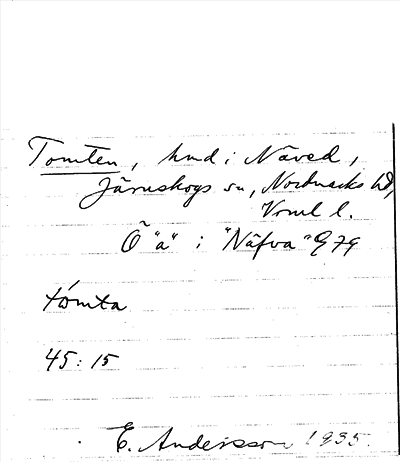 Tomten, hmd i Näved,
Järnskogs sn, Nordmarks hd,
Vrml l.
Ö "ä" i "Näfva" G 79
tómta
45:15
E. Andersson 1935.